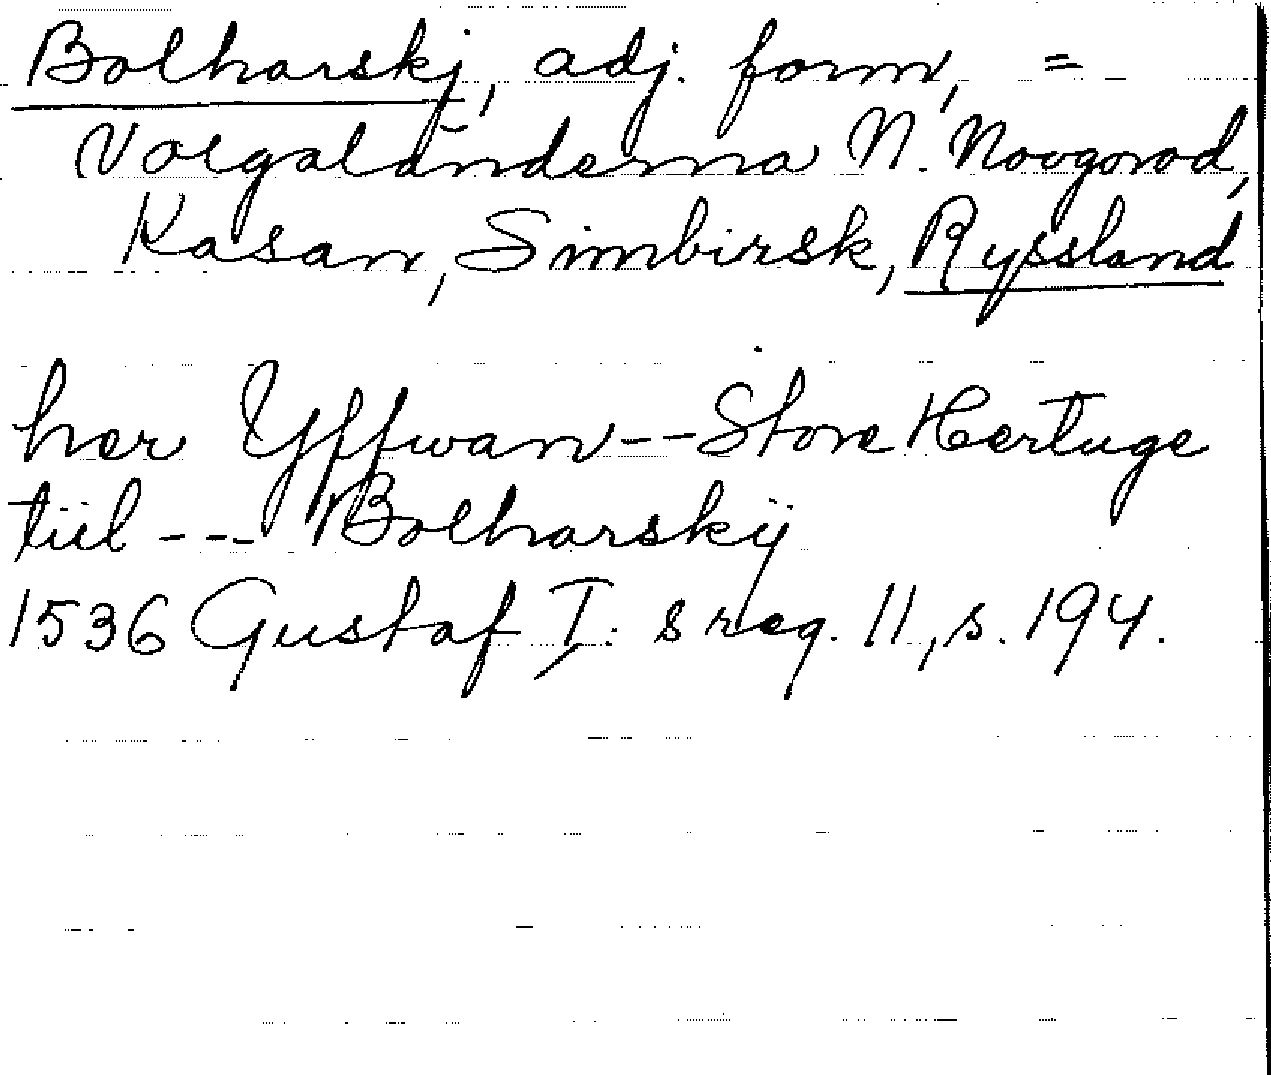 Bolharskj, adj. form, =
Volgaländerna N. Novgorod,
Kasan, Simbirsk, Ryssland
her Yffwan -- Store Hertuge
tiil --- Bolharskij
1536 Gustaf I:s reg. 11, s. 194.